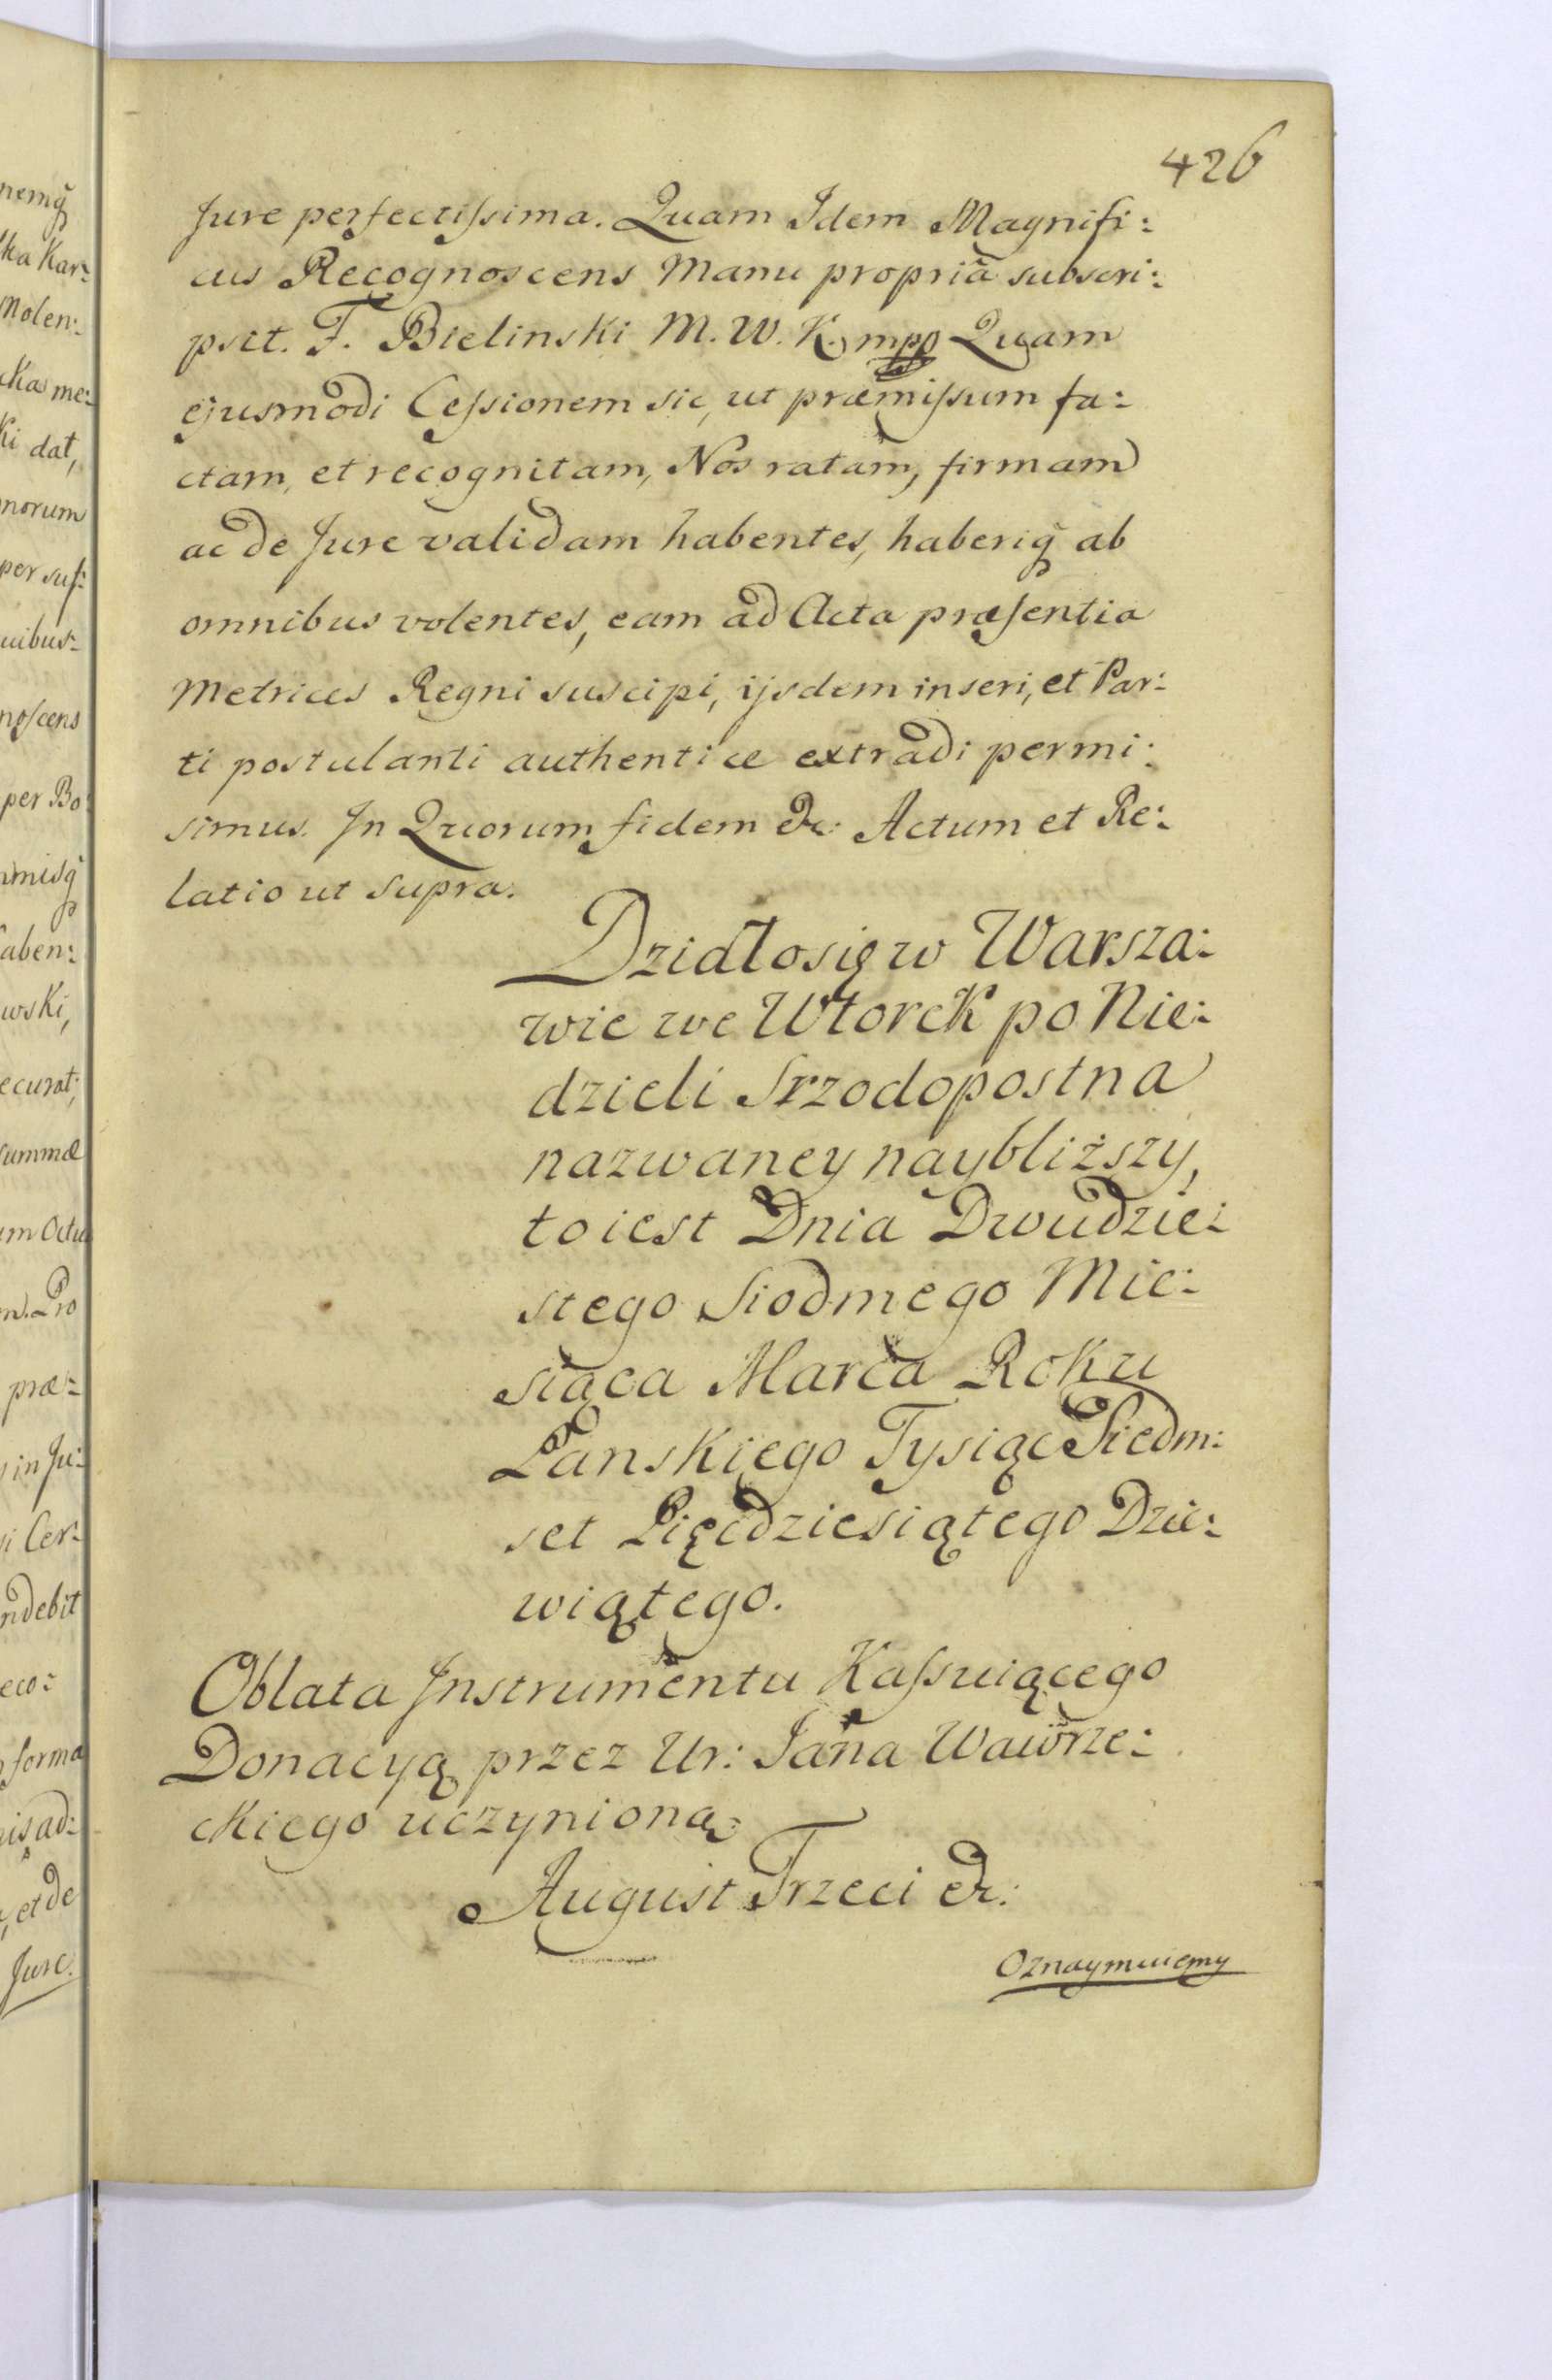 426
Jure perfectissima. Quam Idem Magnifi:
cus Recognoscens Manu propriâ subscri:
psit. F. Bielinski M. W. K. mpp Quam
ejusmodi Cessionem sic, ut præmissum fa:
ctam, et recognitam, Nos ratam, firmam
ac de Jure validam habentes, haberiq̃ ab
omnibus volentes, eam ad Acta præsentia
Metrices Regni suscipi, ijsdem inseri, et Par:
ti postulanti authentice extradi permi:
simus. In Quorum fidem &c: Actum et Re:
latio ut supra.
Działo się w Warsza:
wie we Wtorek po Nie:
dzieli Srzodopostna
nazwaney naybliższy,
to iest Dnia Dwudzie:
stego Siodmego Mie:
siąca Marca Roku
Panskiego Tysiąc Siedm:
set Pięcdziesiątego Dzie:
wiątego.
Oblata Instrumentu Kassuiącego
Donacyą przez Ur: Jana Wawrze:
ckiego uczynioną.
August Trzeci &c:
Oznaymuiemy
nemq̃
ska Kar:
Molen:
ckas me:
ki dat,
norum
per suf:
uibus:
noscens
per Bo:
mnisq̃
aben:
wski,
ecurat;
summæ
um Octua
m. Pro
præ:
in Ju:
i Cer:
ndebit
eco:
forma
is ad:
, et de
Jure.